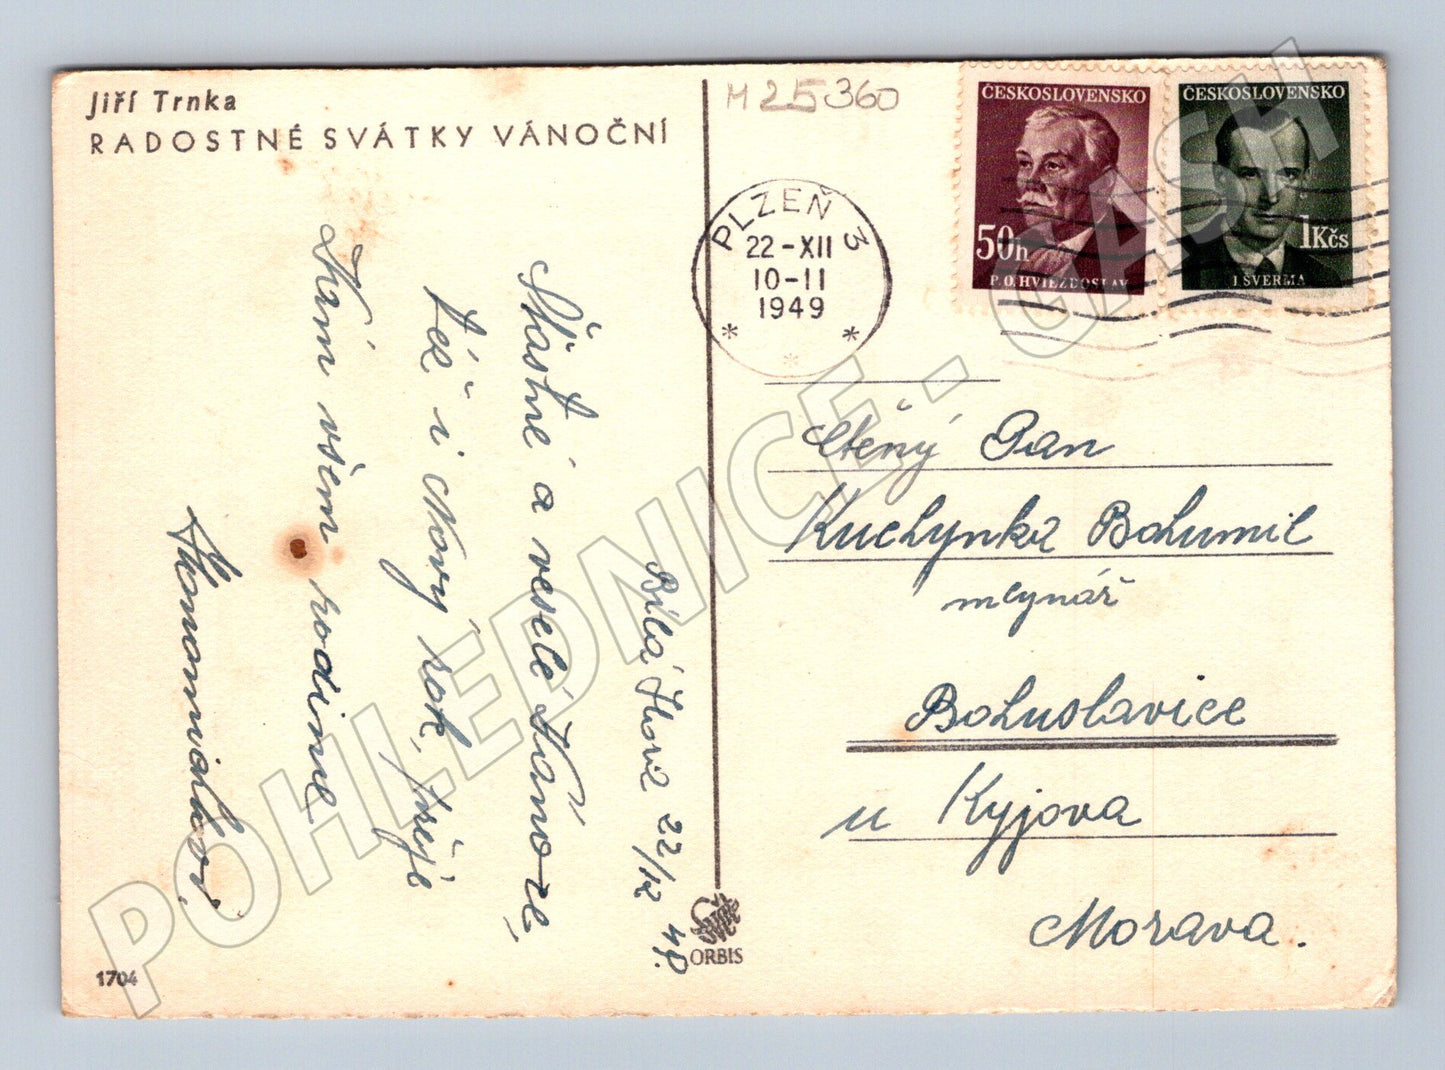 Jiří Trnka
RADOSTNÉ SVÁTKY VÁNOČNÍ
M 25360
ČESKOSLOVENSKO
50h
P. O. HVIEZDOSLAV
ČESKOSLOVENSKO
1Kčs
J. ŠVERMA
PLZEŇ 3
22-XII
10-11
1949
Bílá Hora 22/12 49.
Šťastné a veselé Vánoce,
též i Nový rok, přeje
Vám všem rodina
Ctěný Pan
Kuchynka Bohumil
mlynář
Bohuslavice
u Kyjova
Morava.
ORBIS
1704
POHLEDNICE - CASH